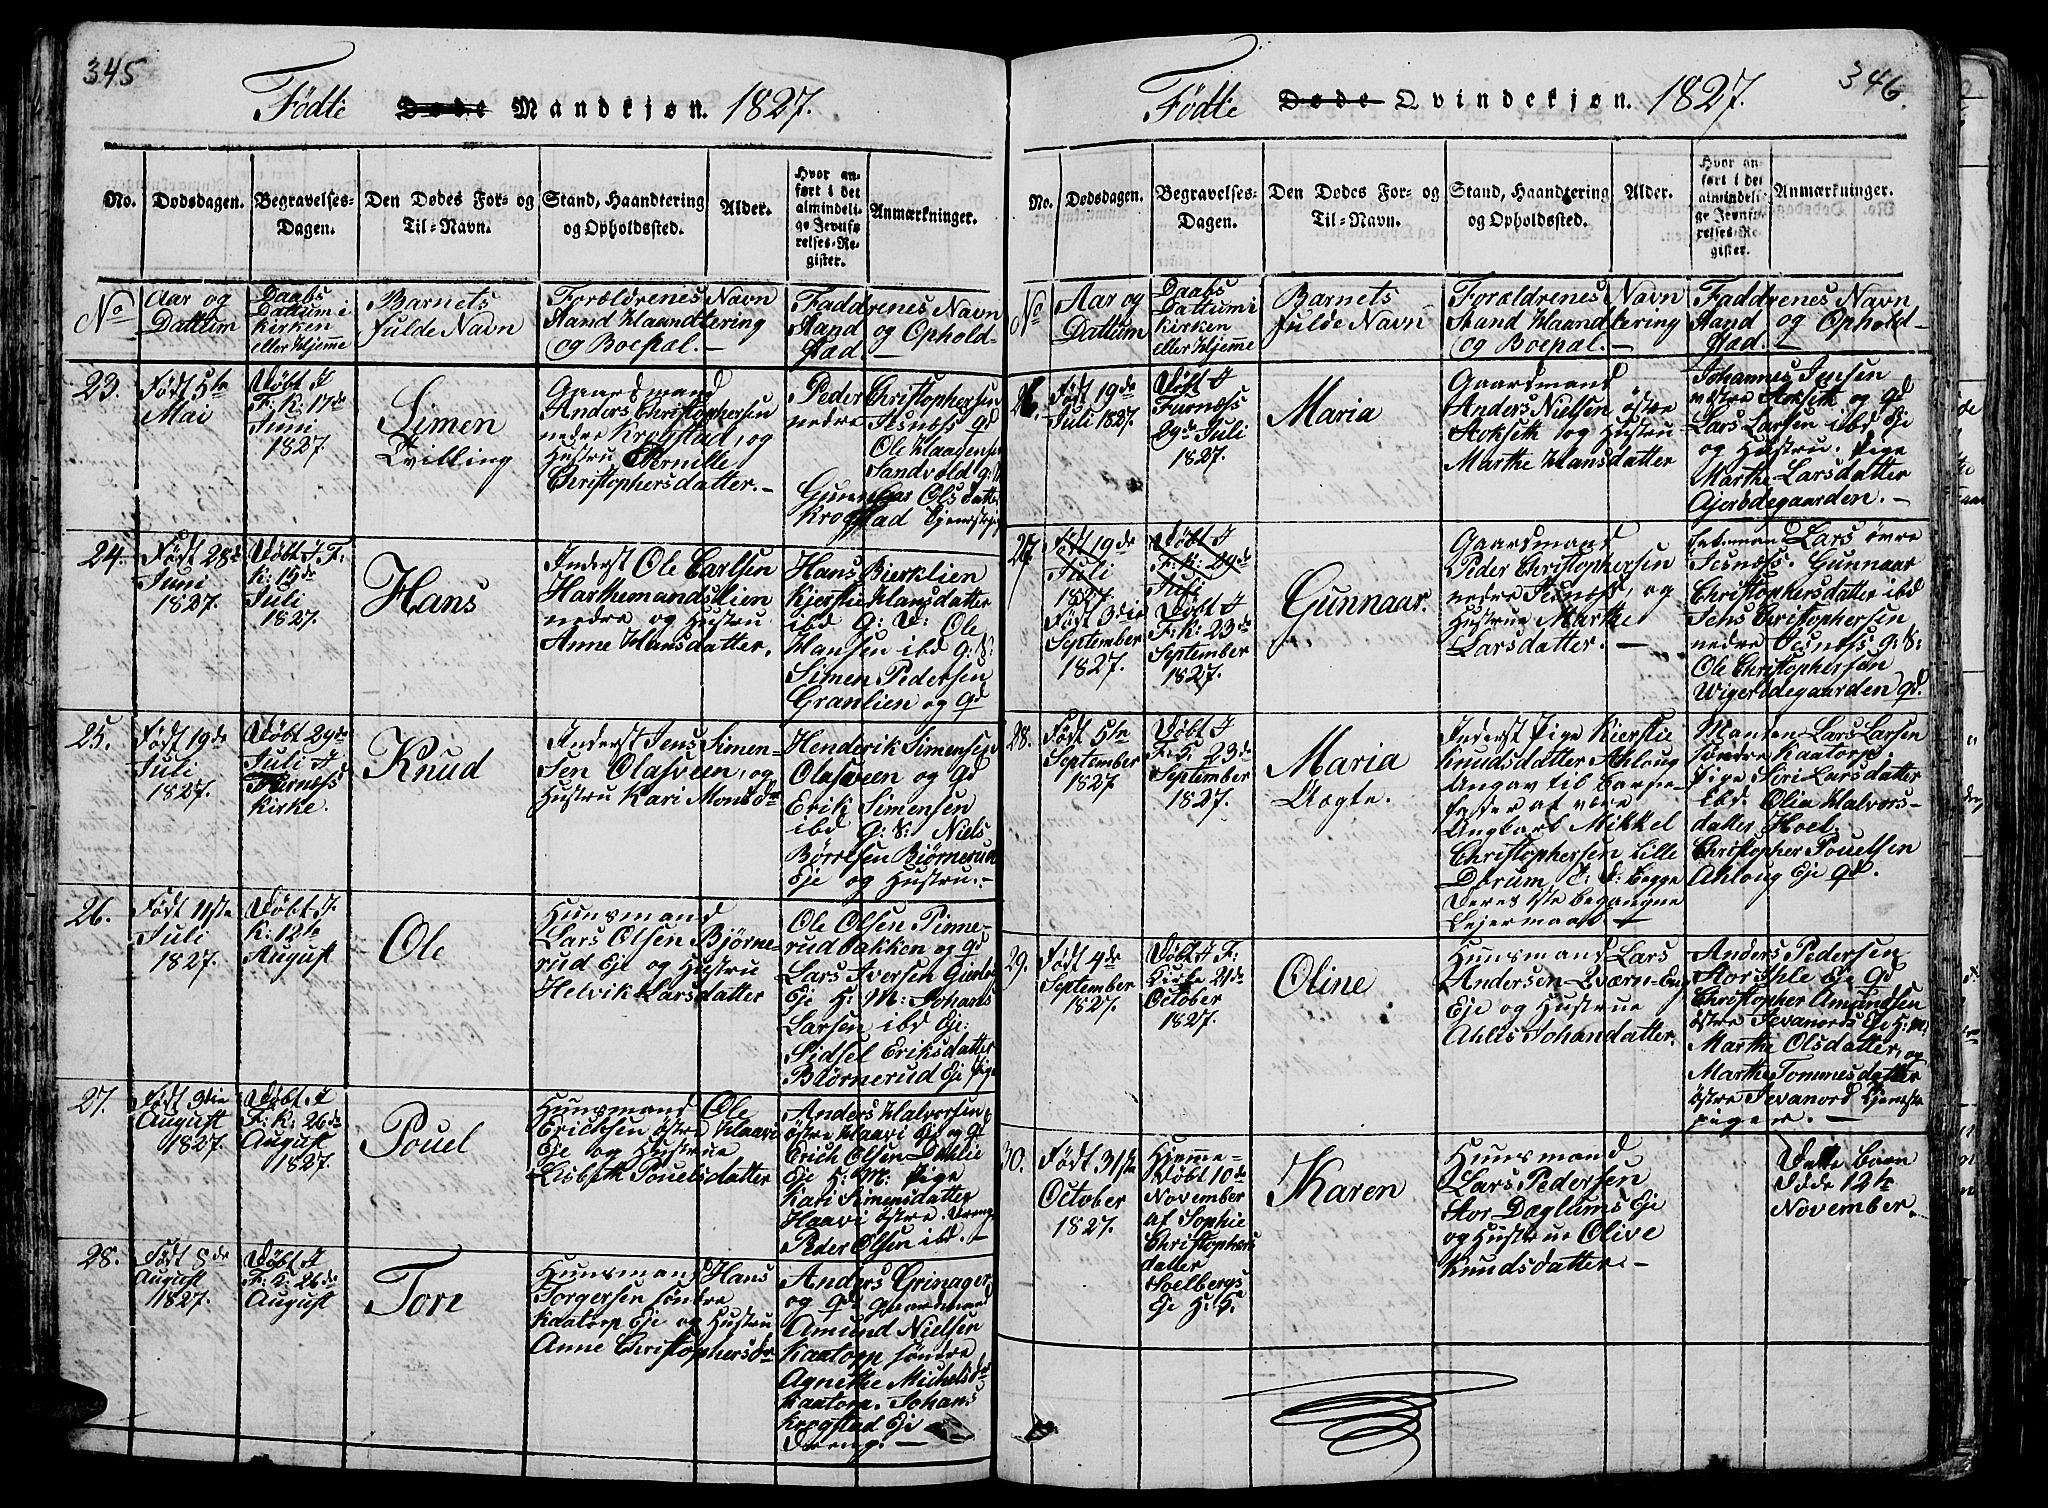 345
Fødte Døde Mandkjøn. 1827.
No. Dødsdagen. Begravelses-Dagen. Den Dødes For- og Til-Navn. Stand, Haandtering og Opholdssted. Alder. Hvor anført i det almindelige Jevnførelses-Register. Anmærkninger.
No
Aar og
Dattum
Daabs
Dattum i
Kirken
eller Hjemme
Barnets
fulde Navn
Forældrenes Navn
Stand Haandtering
og Boepæl.
Faddrenes Navn
Stand og Ophold-
stæd.
23.
Født 5te
Mai
Døbt I
F: K: 17de
Juni
1827.
Simen
Tvilling
Gaardmand
Anders Christophersen
nedre Krogstad, og
Hustru Pernille
Christophersdatter.
Peder Christophersen
nedre Jesnæss Gd
Ole Haagensen
Sandvold g: S:
Gunnaar Olsdatter
Krogstad
24.
Født 28de
Juni
1827.
Døbt I F:
K: 15de
Juli
1827.
Hans
Inderst Ole Carlsen
Harthemandslien
nedre og Hustru
Anne Hansdatter.
Hans Bierklien
Kierstie Hansdatter
ibd g: D: Ole
Hansen ibd g: S:
Simen Pedersen
Granlien og Gd
25.
Født 19de
Juli
1827.
Døbt 29de
Juli I
Furnæss
Kirke.
Knud
Inderst Jens Simen-
sen Olasveen, og
Hustru Kari Monsdr
Henderik Simensen
Olasveen og Gd
Erik Simensen
ibd g: S: Niels
Børresen Biørnerud
Eje og Hustru.
26.
Født 11ste
Juli
1827.
Døbt I.
K: 12te
August
Ole
Huusmand
Lars Olsen Bjørne-
rud Eje og Hustru
Helvik Larsdatter
Ole Olsen Pinne-
rudbakken og Gd
Lars Iversen
Eje H: M: Johans
Larsen ibd Eje:
Sidsel Eriksdatter
Biørnerud Eje Pige
27.
Født 3die
August
1827.
Døbt I
F: K: 26de
August
1827.
Pouel
Huusmand Ole
Ericksen østre Haavi
Eje og Hustrue
Lisbeth Pouelsdatter
Anders Halvorsen
østre Haavi Eje og Gd
Erich Olsen Dæhlie
Eje H: M: Pige
Kari Simensdatter
Haavi østre. Dreng
Peder Olsen ibd.
28.
Født 8de
August
1827.
Døbt I
F: K: 26de
August
Tore
Huusmand Hans
Torgersen søndre
Kaatorp Eje og Hustru
Anne Christophersdr
Anders Grinager
og Gd gaardmand
Amund Nielsen
Kaatorp søndre
Agnethe Michelsdr
Kaatorp. Johans
Krogstad Eje
Dreng.
346.
Fødte Døde Qvindekjøn. 1827.
No. Dødsdagen. Begravelses-Dagen. Den Dødes For- og Til-Navn. Stand, Haandtering og Opholdssted. Alder. Hvor anført i det almindelige Jevnførelses-Register. Anmærkninger.
No
Aar og
Dattum
Daabs
Dattum i
Kirken
eller Hjemme
Barnets
fulde Navn
Forældrenes Navn
Stand Haandtering
og Boepæl.
Faddrenes Navn
Stand og Ophold-
stæd.
26.
Født 19de
Juli 1827.
Døbt I
Furnæss
29de Juli
1827.
Maria
Gaardmand
Anders Nielsen østre
Aokseth og Hustru
Marthe Hansdatter
Johannes Jensen
vestre Aokseth og Gd
Lars Larsen ibd Eje
og Hustru. Pige
Marthe Larsdatter
Ajerødegaarden.
27.
Født 19de
Juli
1827.
Født 3die
September
1827.
Døbt I
F: K: 29de
Juli
Døbt I
F: K: 23de
September
1827.
Gunnaar.
Gaardmand
Peder Christophersen
nedre Jesnæss, og
Hustrue Marthe
Larsdatter.
Lars øvre
Jesnæss. Gunnaar
Christophersdatter ibd
Jens Christophersen
nedre Jesnæss g: S:
Ole Christophersen
Wigerødegaarden Gd.
28.
Født 5te
September
1827
Døbt I
F: K: 23de
September
1827.
Maria
Uægte.
Inderst Pige Kierstie
Knudsdatter Ahloug
Angav til Barne-
fader at være
Ungkarl Mikkel
Christophersen lille
Dørum E: F: begge
deres 1ste begangne
Lejermaal
Lars Larsen
søndre Kaatorp.
Pige Siri Larsdatter
Ebd. Olia Halvors-
datter Hoel.
Christopher Pouelsen
Ahloug Eje Gd.
29.
Født 4de
September
1827.
Døbt I F:
Kirke 21de
October
1827.
Oline
Huusmand Lars
Andersen Qværn-Eng
Eje og Hustrue
Ahlis Johandatter.
Anders Pedersen
Stor Ihle Eje Gd
Christopher Amundsen
østre Jevanords Eje H: M:
Marthe Olsdatter, og
Marthe Tommesdatter
østre Jevanord tjeneste
piger.
30.
Født 31te
October
1827.
Hjemme-
døbt 10de
November
af Sophie
Christophers
datter
Stoelbergs
Eje H: K:
Karen
Huusmand
Lars Pedersen
Stor Dæglums Eje
og Hustrue Olive
Knudsdatter.
Dette barn
døde 12te
November.